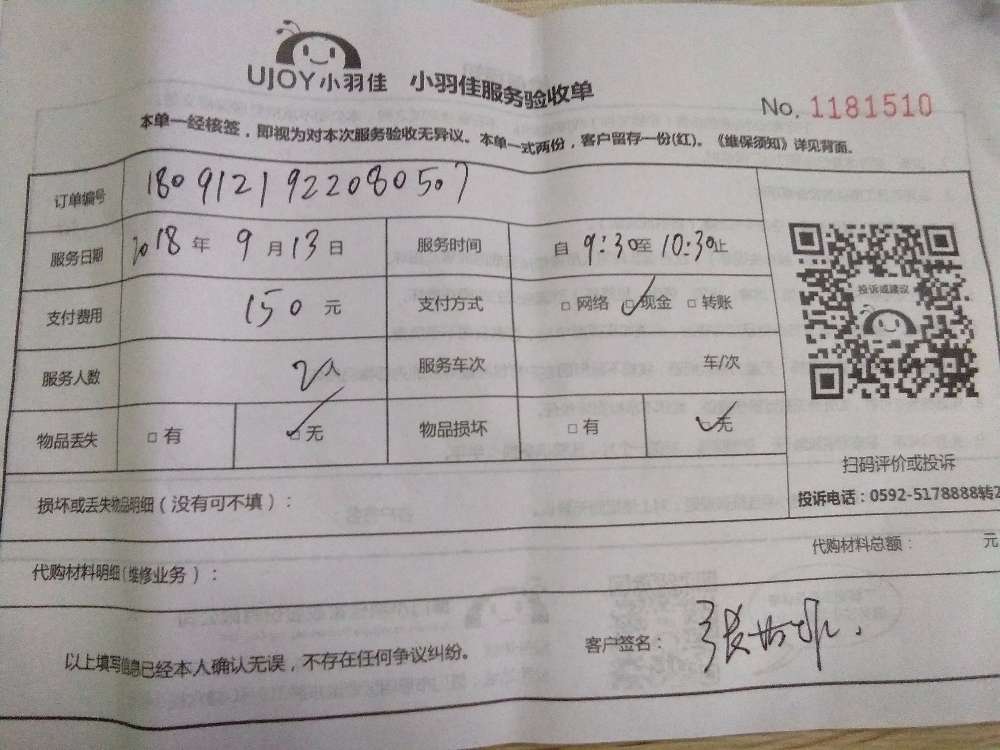 UJOY小羽佳 小羽佳服务验收单
No. 1181510
本单一经核签，即视为对本次服务验收无异议。本单一式两份，客户留存一份(红)。《维保须知》详见背面。
订单编号 1809121922080507
服务日期 2018年 9月13日 服务时间 自 9:30至 10:30止
投诉或建议
支付费用 150 元 支付方式 □网络 ☑现金 □转账
服务人数 2人 服务车次 车/次
物品丢失 □有 ☑无 物品损坏 □有 ☑无
扫码评价或投诉
损坏或丢失物品明细(没有可不填)：
投诉电话：0592-5178888转2
代购材料总额： 元
代购材料明细(维修业务)：
客户签名：
以上填写信息已经本人确认无误，不存在任何争议纠纷。